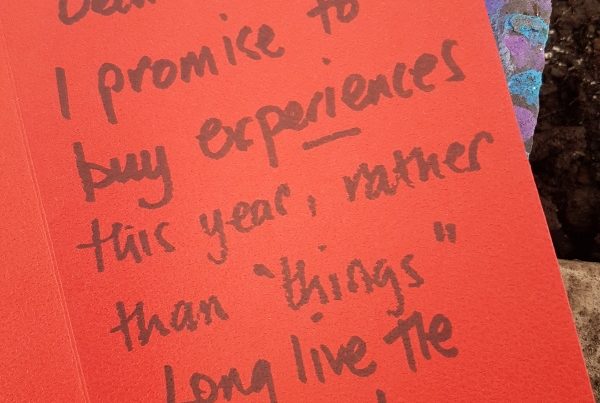 I promise to
buy experiences
this year, rather
than "things"
Long live the